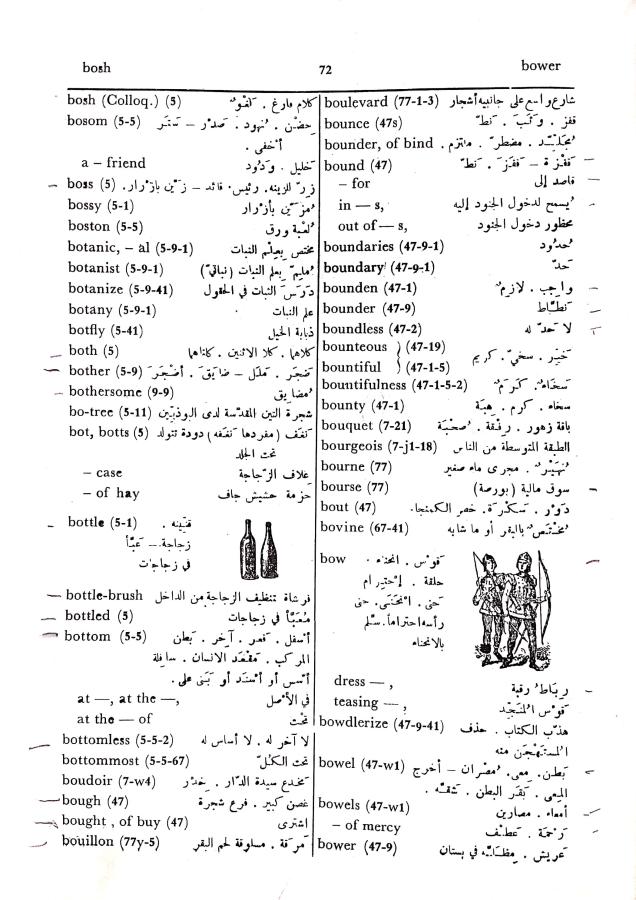 bosh 72 bower
bosh (Colloq.) (5) كلام فارغ . لغو
bosom (5-5) حضن . نهود . صدر – ستر
أخفى .
a – friend خليل . ودود
boss (5) زر للزينه . رئيس . قائد – زين بأزرار .
bossy (5-1) مزين بأزرار
boston (5-5) لعبة ورق
botanic, – al (5-9-1) مختص بعلم النبات
botanist (5-9-1) عليم بعلم النبات (نباتي)
botanize (5-9-41) درس النبات في الحقول
botany (5-9-1) علم النبات
botfly (5-41) ذبابة الخيل
both (5) كلاهما . كلا الاثنين . كلتاهما
bother (5-9) ضجر . ملل – ضايق . أضجر
bothersome (9-9) مضايق
bo-tree (5-11) شجرة التين المقدسة لدى البوذيين
bot, botts (5) نغف (مفردها نغفه) دودة تتولد
تحت الجلد
– case غلاف الزجاجة
– of hay حزمة حشيش جاف
bottle (5-1) قنينه .
زجاجة – عبأ
في زجاجات
bottle-brush فرشاة تنظيف الزجاجة من الداخل
bottled (5) معبأ في زجاجات
bottom (5-5) أسفل . قعر . آخر . بطن
المركب . مقعد الانسان . سافلة
أسس أو أسند أو بنى على .
at —, at the —, في الأصل
at the — of تحت
bottomless (5-5-2) لا آخر له . لا أساس له
bottommost (5-5-67) تحت الكل
boudoir (7-w4) مخدع سيدة الدار . خدر
bough (47) غصن كبير . فرع شجرة
bought , of buy (47) اشترى
bouillon (77y-5) مرقة . مسلوقة لحم البقر
boulevard (77-1-3) شارع واسع على جانبيه أشجار
bounce (47s) قفز . وثب . نط
bounder, of bind مجلد . مضطر . ملتزم .
bound (47) قفزة – قفز . نط
– for قاصد إلى
in — s, يسمح لدخول الجنود إليه
out of — s, محظور دخول الجنود
boundaries (47-9-1) حدود
boundary (47-9-1) حد
bounden (47-1) واجب . لازم
bounder (47-9) نطاط
boundless (47-2) لا حد له
bounteous } (47-19) خير . سخي . كريم
bountiful } (47-1-5)
bountifulness (47-1-5-2) سخاء . كرم
bounty (47-1) سخاء . كرم . هبة
bouquet (7-21) باقة زهور . رفقة . صحبة
bourgeois (7-j1-18) الطبقة المتوسطة من الناس
bourne (77) نهير . مجرى ماء صغير
bourse (77) سوق مالية (بورصة)
bout (47) دور . سكرة . خصر الكمنجا .
bovine (67-41) مختص بالبقر أو ما شابه
bow قوس . انحناء .
حلقة . إحترام
حنى . انحنى . حنى
رأسه احتراما . سلم
بالانحناء
dress — , رباط رقبة
teasing — , قوس المنجد
bowdlerize (47-9-41) هذب الكتاب . حذف
المستهجن منه
bowel (47-w1) بطن . معى . مصران – أخرج
المعى . بقر البطن . شقه .
bowels (47-w1) أمعاء . مصارين
– of mercy رحمة . عطف
bower (47-9) عريش . مظلة في بستان